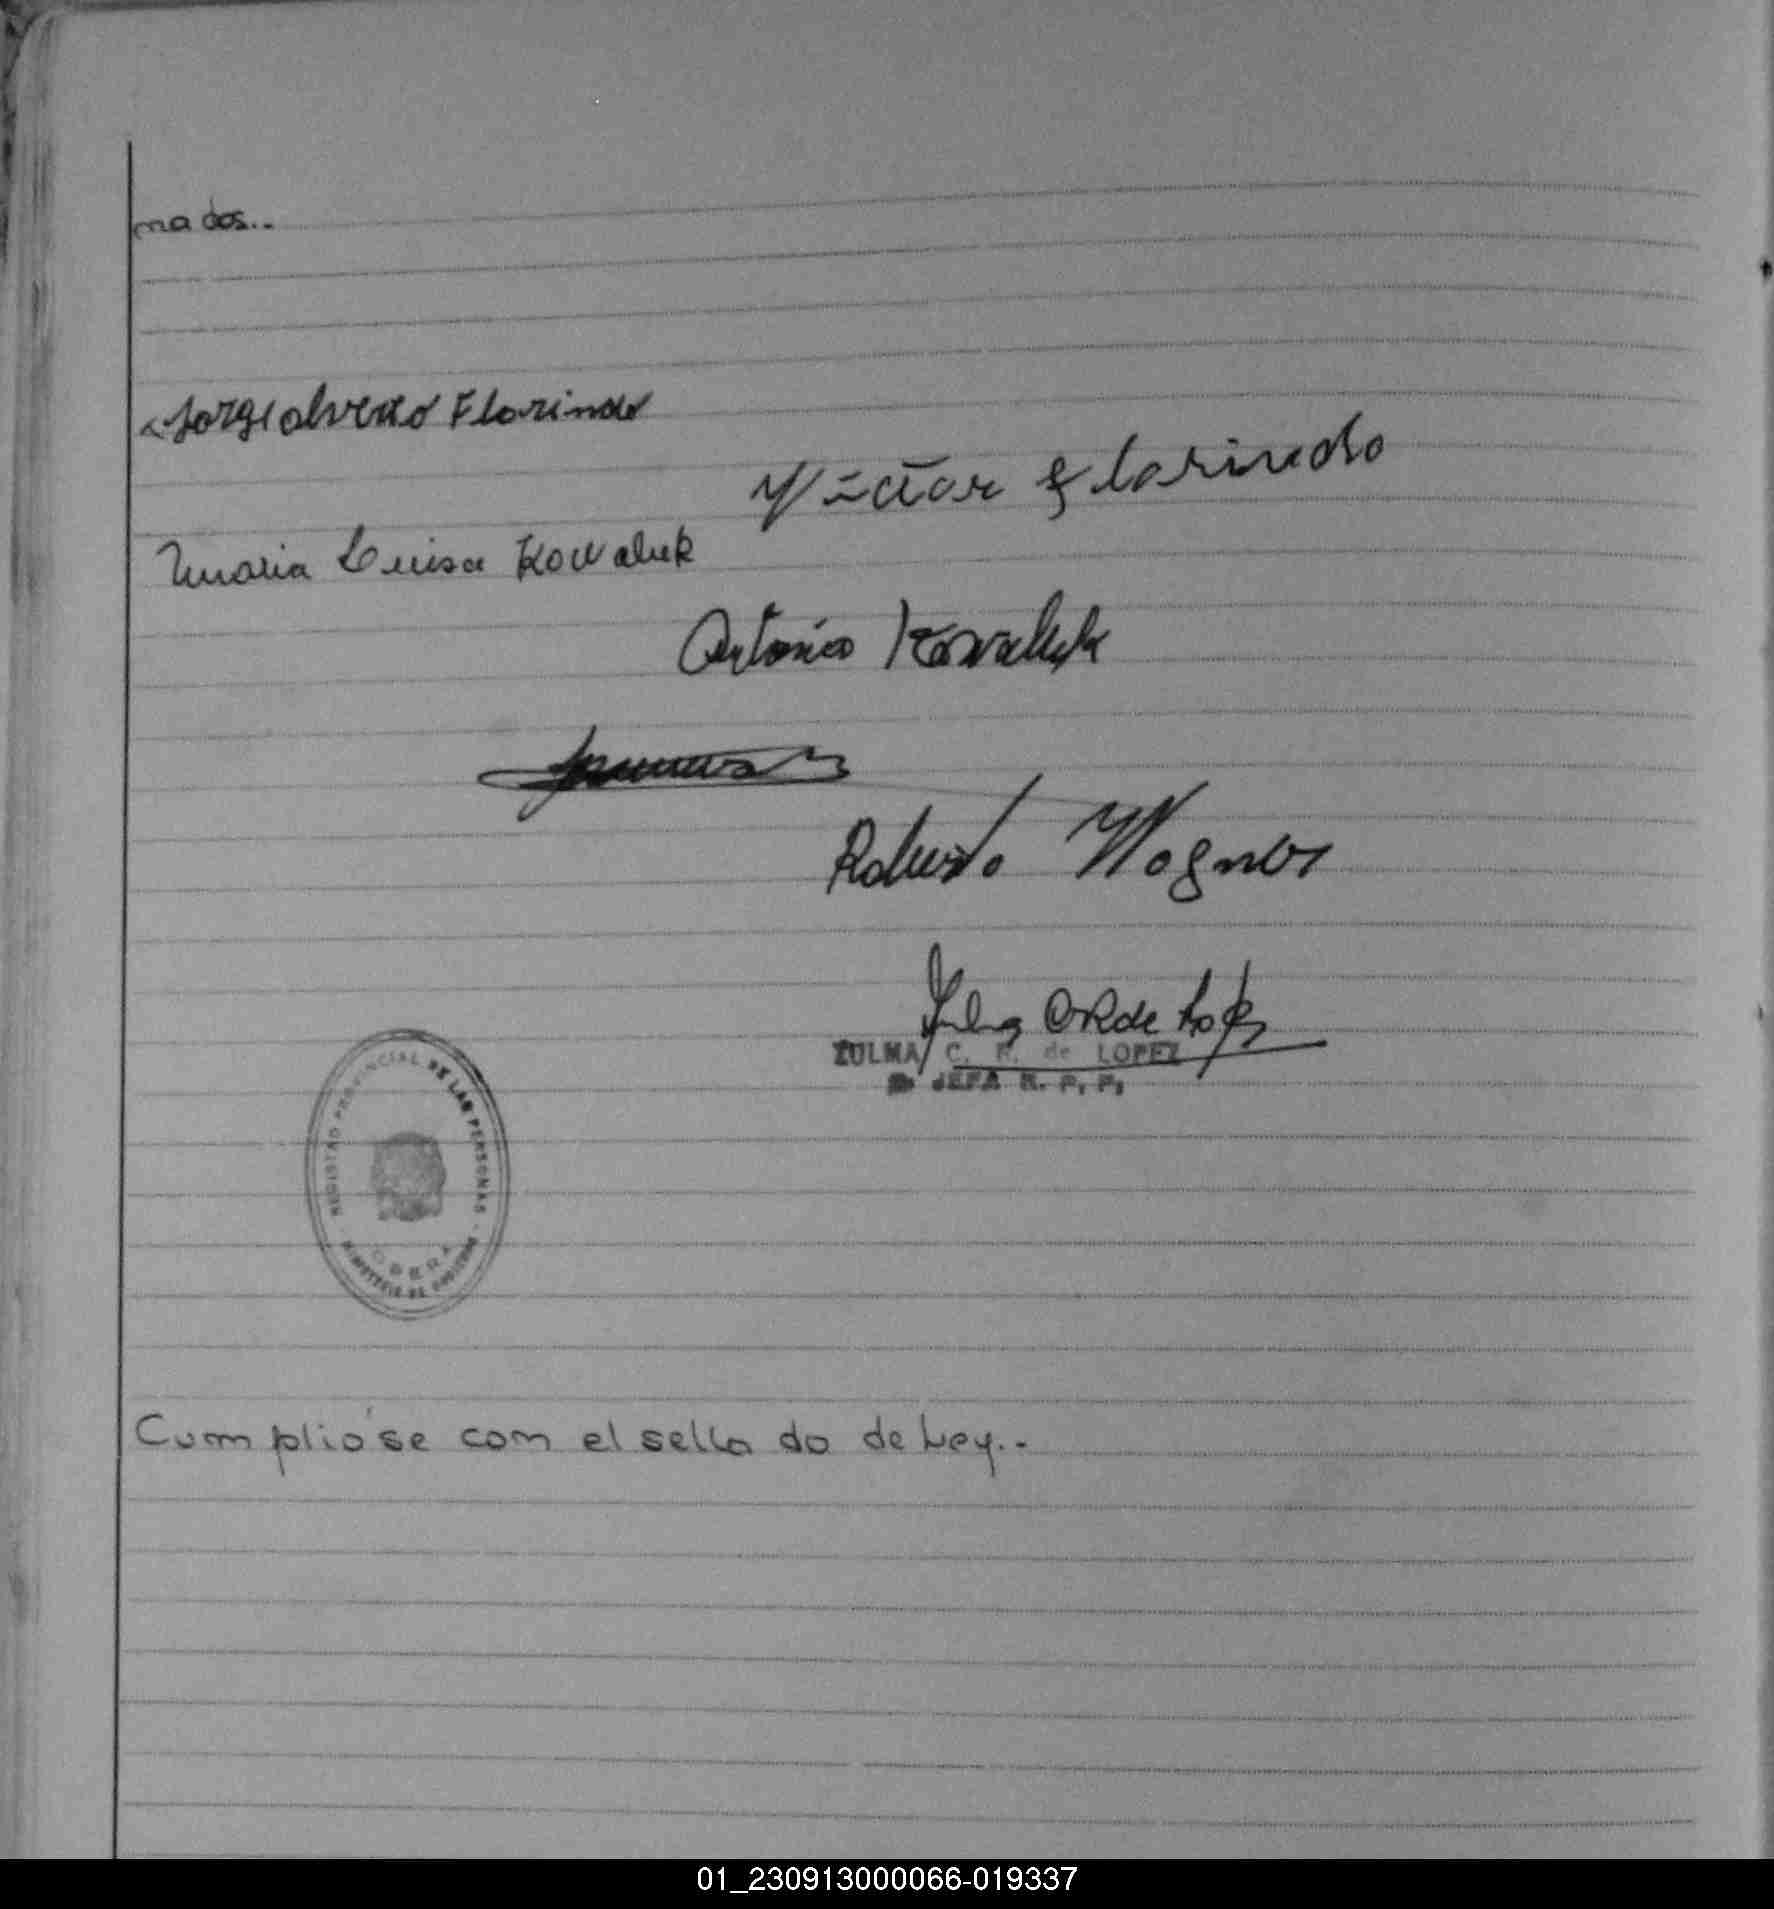 mados..
Jorge Alverto Florindo
Víctor Florindo
Maria Luisa Kowaluk
Antonio Kowaluk
Roberto Wagner
Zulma C R de Lopez
ZULMA C. R. de LOPEZ
JEFA R. P. P.
REGISTRO PROVINCIAL DE LAS PERSONAS
OBERA
MINISTERIO DE GOBIERNO
Cumplióse com el sellado de Ley..
01_230913000066-019337